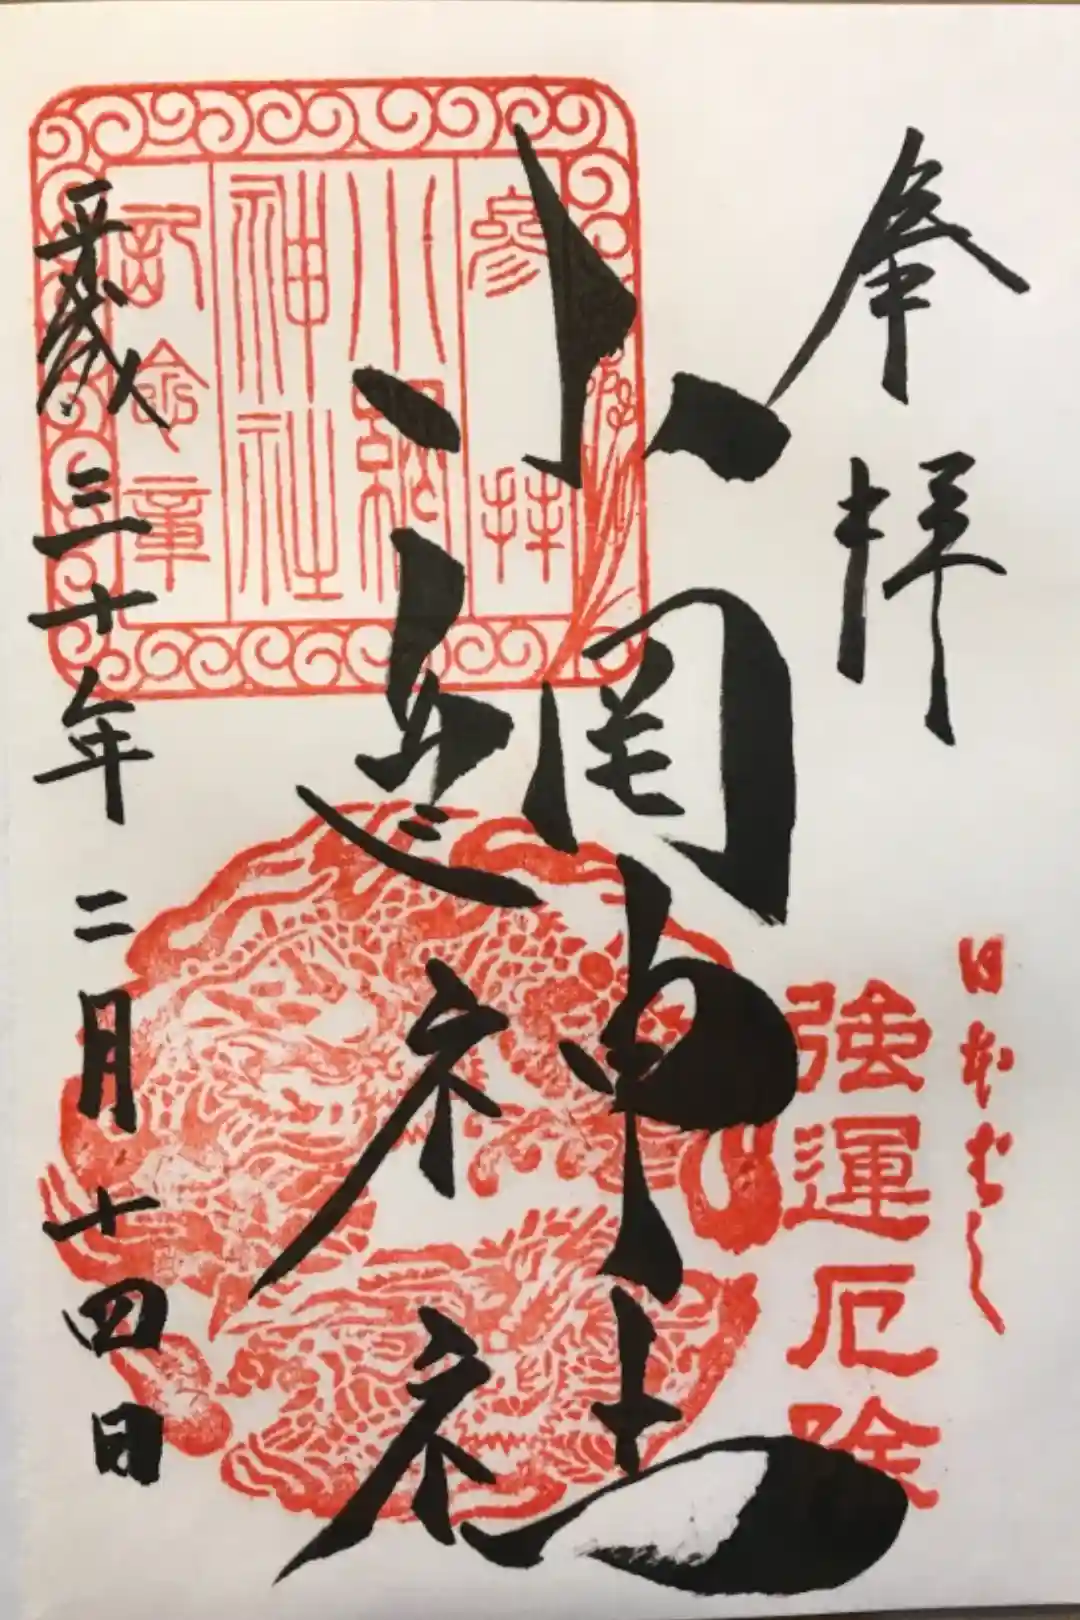 奉拝
日本はし
強運厄除
小網神社
參拝
小網神社
記念章
平成三十年二月十四日